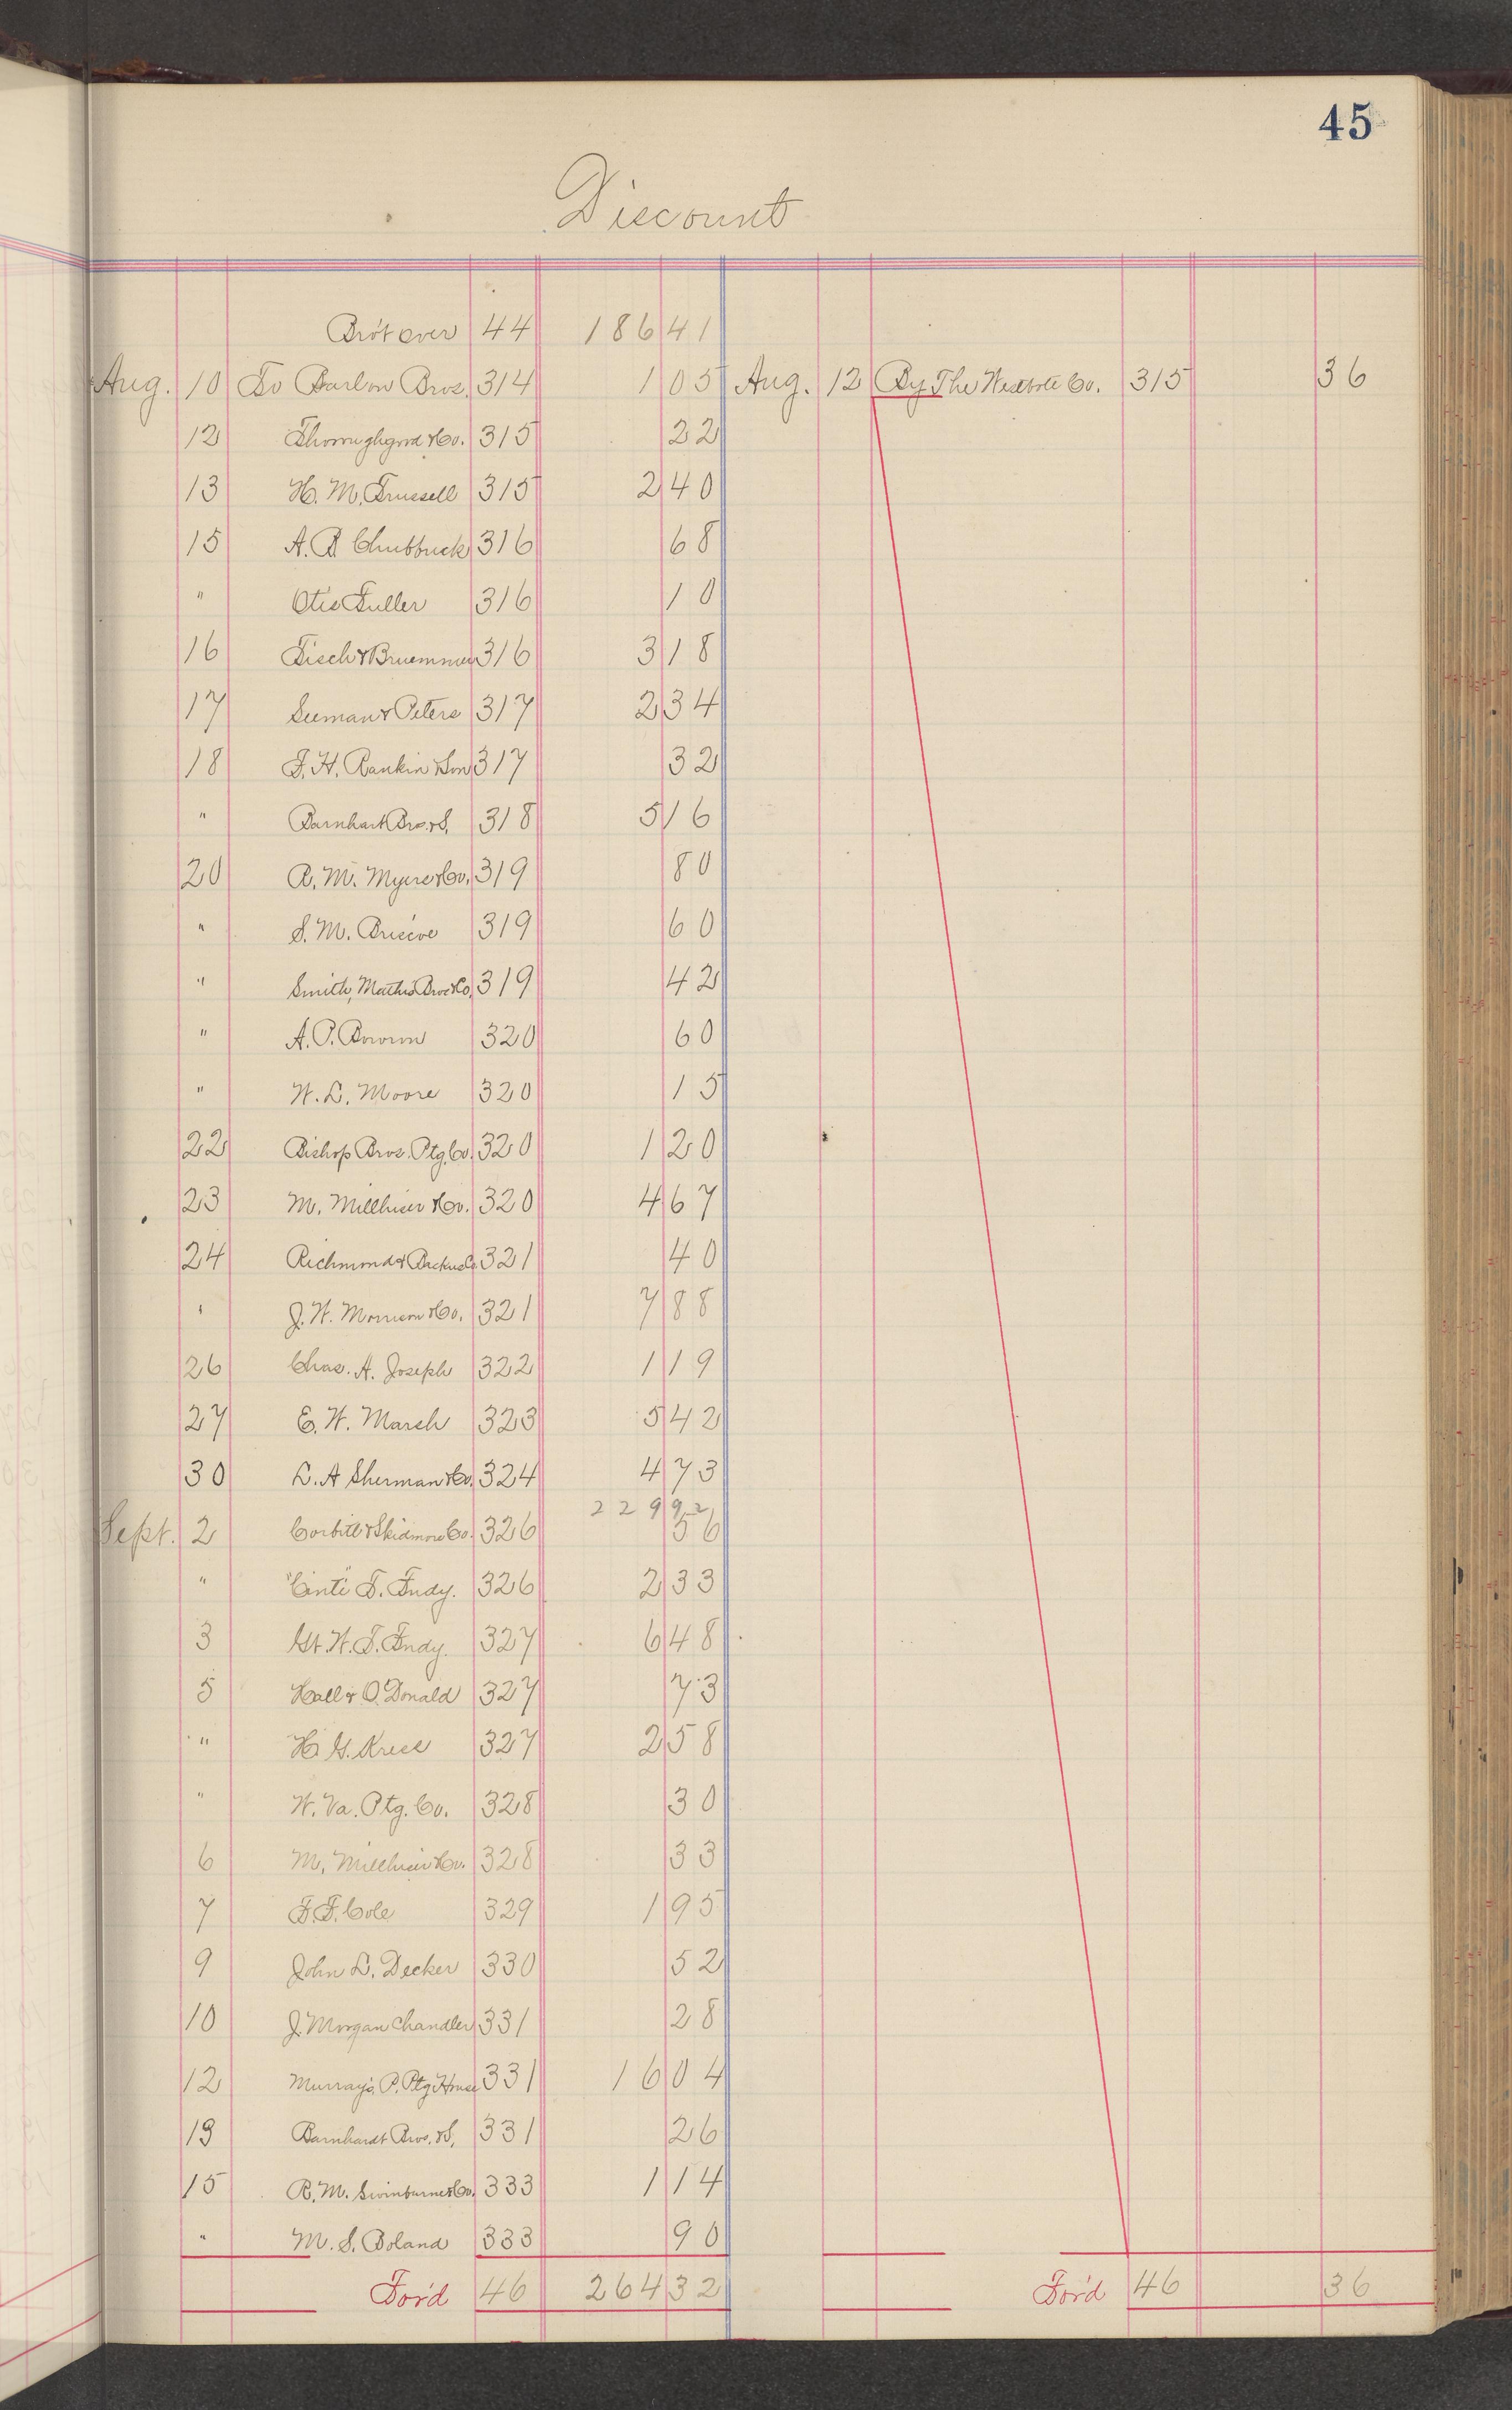 45
Discount
Bro't over 44 186 41
Aug. 10 To Barlow Bros. 314 1 05 Aug. 12 By The Westbote Co. 315 36
12 Thoroughgood & Co. 315 22
13 H. M. Trussell 315 2 40
15 A. B. Chubbuck 316 68
" Otis Fuller 316 10
16 Tisch & Bruemmer 316 3 18
17 Seeman & Peters 317 2 34
18 F. H. Rankin & Son 317 32
" Barnhart Bros. & S. 318 5 16
20 R. M. Myers & Co. 319 80
" S. M. Briscoe 319 60
" Smith, Mathis Bros & Co. 319 42
" A. P. Bowm 320 60
" W. L. Moore 320 15
22 Bishop Bros. Ptg. Co. 320 1 20
23 M. Millhiser & Co. 320 4 67
24 Richmond & Backus Co. 321 40
" J. W. Morrison & Co. 321 7 88
26 Chas. A. Joseph 322 1 19
27 E. W. Marsh 323 5 42
30 L. A Sherman & Co. 324 4 73
229 92
Sept. 2 Corbitt & Skidmore Co. 326 56
" "Cinti" T. Fndy. 326 2 33
3 Gt. W. T. Fndy. 327 6 48
5 Hall & O'Donald 327 73
" H. G. Kress 327 2 58
" W. Va. Ptg. Co. 328 30
6 M. Millhiser & Co. 328 33
7 F. F. Cole 329 1 95
9 John L. Decker 330 52
10 J. Morgan Chandler 331 28
12 Murray's P. Ptg House 331 16 04
13 Barnhardt Bros. & S. 331 26
15 R. M. Swinburne & Co. 333 1 14
" M. S. Boland 333 90
For'd 46 264 32 For'd 46 36